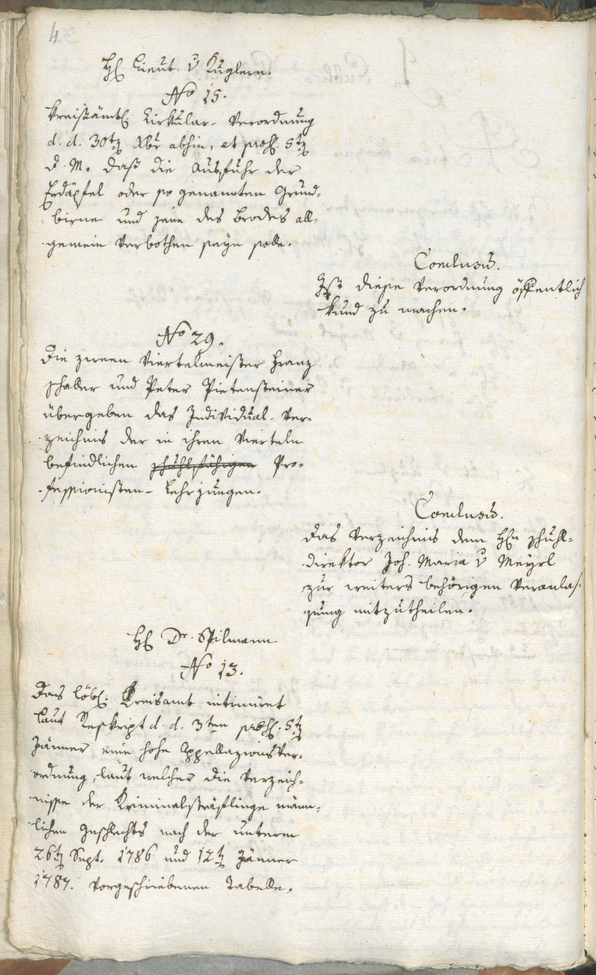 4.
H: Lieut. v Kuglern.
No 15.
Kreisämtl: Zirkular-Verordnung
d. d. 30t Xbr abhin, et pres: 5t
d. M. daß die Ausfuhr der
Erdäpfel oder so genannten Grund-
birne und jene des Brodes all-
gemein verbothen seyn solle.
Conclusum.
Ist diese Verordnung öffentlich
kund zu machen.
No 29.
Die zween Viertelmeister Franz
Schaller und Peter Pietensteiner
übergeben das Individual-Ver-
zeichnis der in ihren Vierteln
befindlichen schuhlfähigen Pro-
fessionisten-Lehrjungen.
Conclusum.
Das Verzeichnis dem Hn Schuhl-
direktor Joh. Maria v Meyrl
zur weiters behörigen Veranlas-
sung mitzutheilen.
H: Dr. Spilmann.
No 13.
Das löbl: Kreisamt intimiret
laut Reskript d. d. 3ten pres: 5t
Jänner eine hohe Appellazionsver-
ordnung, laut welcher die Verzeich-
nisse der Kriminalsträflinge männ-
lichen Geschlechts nach der unterm
26t Sept. 1786 und 12t Jänner
1787. vorgeschriebenen Tabelle.